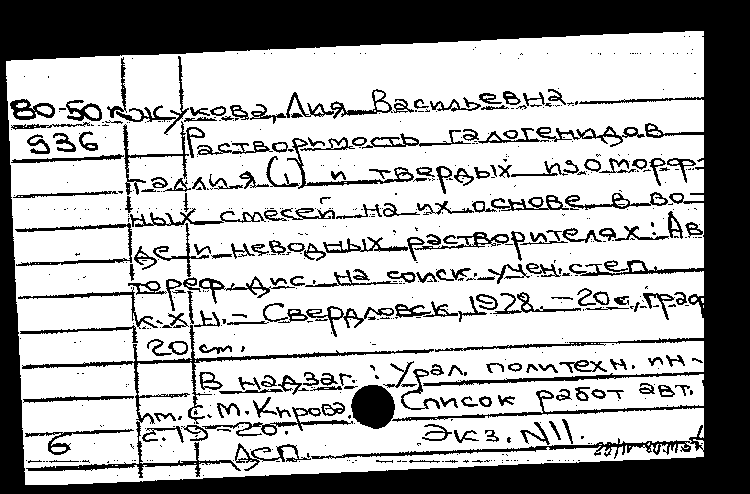 80-50 Кожукова, Лия Васильевна
936 Растворимость галогенидов
таллия (I) и твердых изоморф-
ных смесей на их основе в во-
де и неводных растворителях: Ав
тореф. дис. на соиск. учен. степ.
к.х.н. - Свердловск, 1978. - 20 с., граф
20 см.
В надзаг.: Урал. политехн. ин-
им. С. М. Кирова. Список работ авт.
с. 19-20.
6 Деп. Экз. N11.